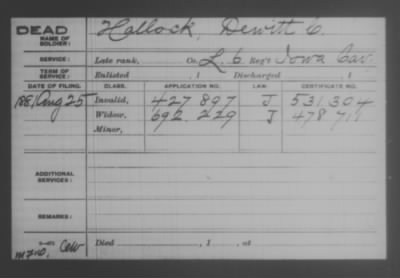 DEAD
NAME OF SOLDIER: Hallock, Dewitt C.
SERVICE: Late rank, Co. L. 6 Reg't Iowa Cav.
TERM OF SERVICE: Enlisted , 1 Discharged , 1
DATE OF FILING. CLASS. APPLICATION NO. LAW. CERTIFICATE NO.
1881 Aug 25 Invalid, 427 897 J 531 304
Widow, 692.229 J 478 711
Minor,
ADDITIONAL SERVICES:
REMARKS:
Died , 1 , at